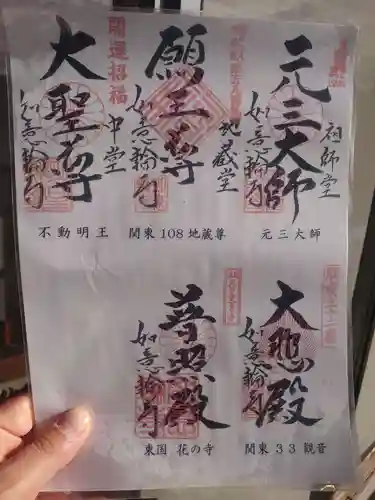 元三大師
祖師堂
如意輪寺
元三大師
願王尊
地蔵堂
如意輪寺
関東108地蔵尊
開運招福
大聖尊
中堂
如意輪寺
不動明王
大悲殿
如意輪寺
関東33観音
普照殿
如意輪寺
東国 花の寺